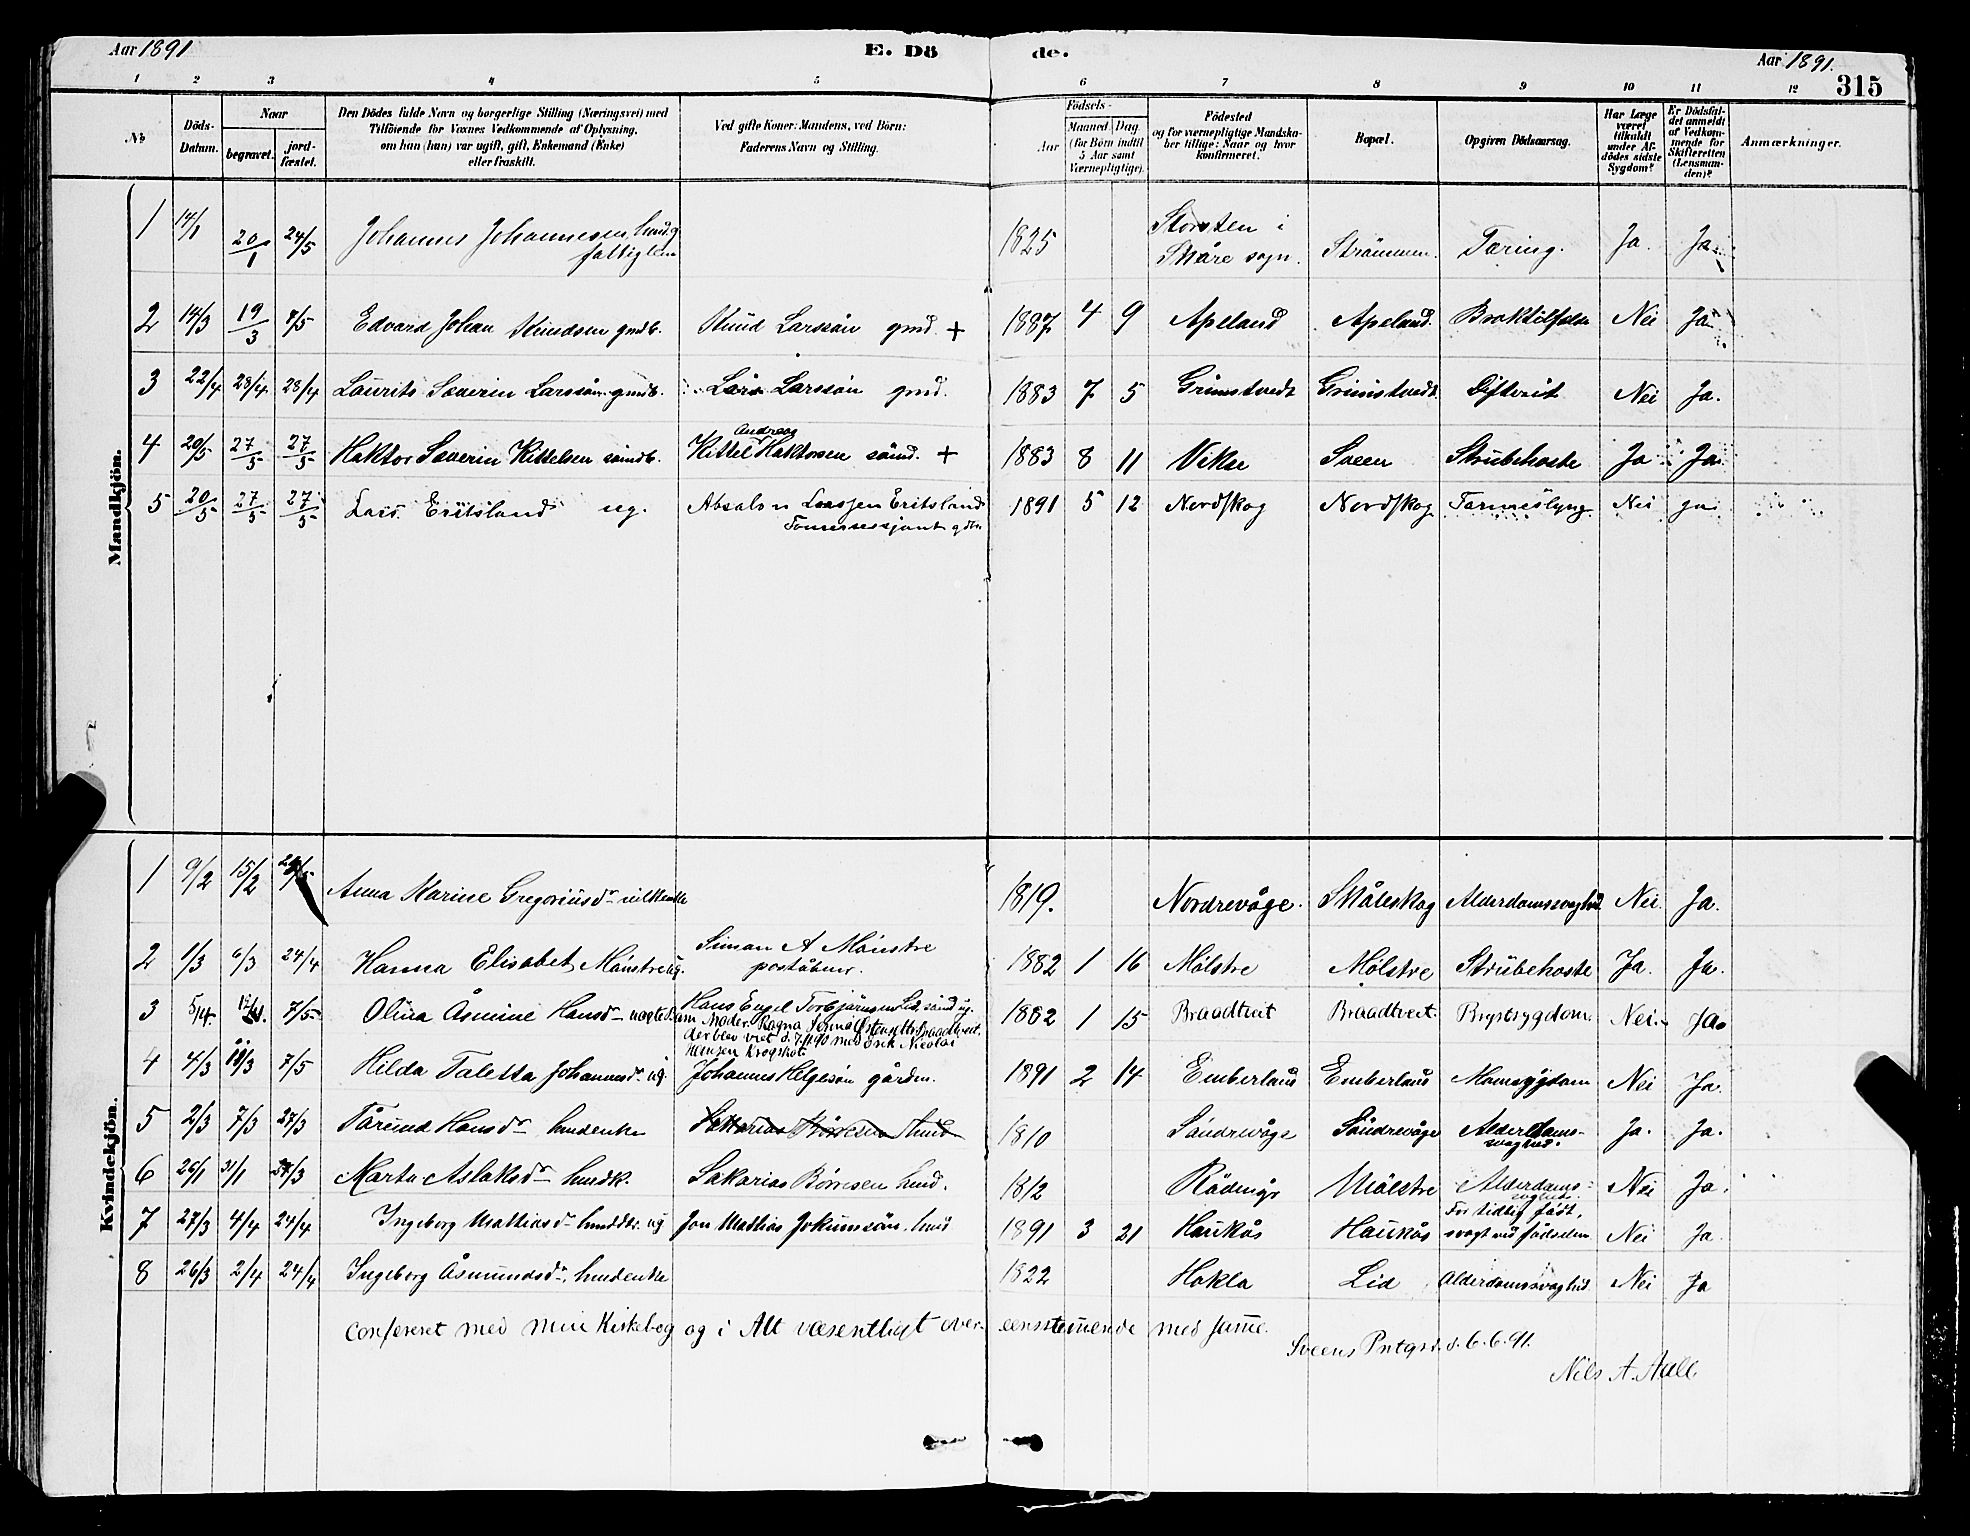 Aar 1891
E. Dö
de.
Aar 1891.
315
1 2 3 4 5 6 7 8 9 10 11 12
№
Döds-Datum.
Naar
begravet.
jordfæstet.
Den Dödes fulde Navn og borgerlige Stilling (Næringsvei) med
Tilföiende for Voxnes Vedkommende af Oplysning,
om han (hun) var ugift, gift, Enkemand (Enke)
eller fraskilt.
Ved gifte Koner: Mandens, ved Börn:
Faderens Navn og Stilling.
Födsels-
Aar
Maaned Dag
(for Börn indtil
5 Aar samt
Værnepligtige).
Födested
og for værnepligtige Mandskaber tillige: Naar og hvor
konfirmeret.
Bopæl.
Opgiven Dödsaarsag.
Har Læge
været
tilkaldt
under Afdödes sidste
Sygdom?
Er Dödsfaldet anmeldt
af Vedkommende for
Skifteretten
(Lensmanden)?
Anmærkninger.
Mandkjön.
1 14/1 20/1 24/5 Johannes Johannesen husd. fattiglem 1825 Storsten i Skåre sogn. Strömmen. Tæring. Ja. Ja.
2 14/3 19/3 7/5 Edvard Johan Knudsen gmdb. Knud Larssön gmd. + 1887 4 9 Apeland Apeland. Braktilfælde Nei Ja
3 22/4 28/4 28/4 Laurits Severin Larssön gmdb. Lars Larssön gmd. 1883 7 5 Grimstvedt Grimstvedt Difterit Nei Ja.
4 20/5 27/5 27/5 Haktor Severin Kittelsen sömdb. Kittel Andreas Haktorsen sömd. + 1883 8 11 Vikse Sveen Strubehoste Ja Ja.
5 20/5 27/5 27/5 Lars Eritsland ug. Absalon Larssen Eritsland 1891 5 12 Nordskog Nordskog Tarmeslyng Nei ja
Kvindekjön.
1 9/2 15/2 24/5 Anna Karine Gregoriusdr 1819. Nordrevåge. Skåleskog Alderdomssvaghed Nei Ja.
2 1/3 6/3 24/4 Hanna Elisabet Mönstre ug. Simon A Mönstre poståbner. 1882 1 16 Mölstre Mölstre Strubehoste Ja. Ja.
3 5/4 12/4 7/5 Olina Åsmine Hansdr uægte Hans Engel Torbjörnsen Lid, sömd ug.
Moder. Ragna Serina Östensdtr Braadtveit.
der blev viet d. 7.11 90 med Erik Nicolai
Hansen Krogskot. 1882 1 15 Braadtveit Braadtveit. Brystsygdom. Nei. Ja
4 4/3 11/3 7/5 Hilda Taletta Johannesdr. ug. Johannes Helgesön gårdm. 1891 2 14 Emberland Emberland Mavesygdom Nei Ja.
5 2/3 7/3 27/3 Tårund Hansdr husdenke Sakarias Börresen husd 1810 Söndrevåge Söndrevåge Alderdoms-svaghed. Ja. Ja.
6 26/1 31/1 27/3 Marta Aslaksdr husdk. Sakarias Börresen husd. 1812 Rödings Mölstre Alderdoms-svaghed. Nei Ja.
7 27/3 4/4 24/4 Ingeborg Mattiasdr husddtr. ug Jon Mattias Jokumsön, husd 1891 3 21 Haukås Haukås For tidlig födt, svagt ved födselen Nei Ja.
8 26/3 2/4 24/4 Ingeborg Åsmundsdr. husdenke 1822 Hokla Lid Alderdomssvaghed. Nei Ja
Confereret med min Kirkebog og i Alt væsentligt overeensstemende med same.
Sveens Prstgrd. d. 6.6.91.
Nils A. Aall